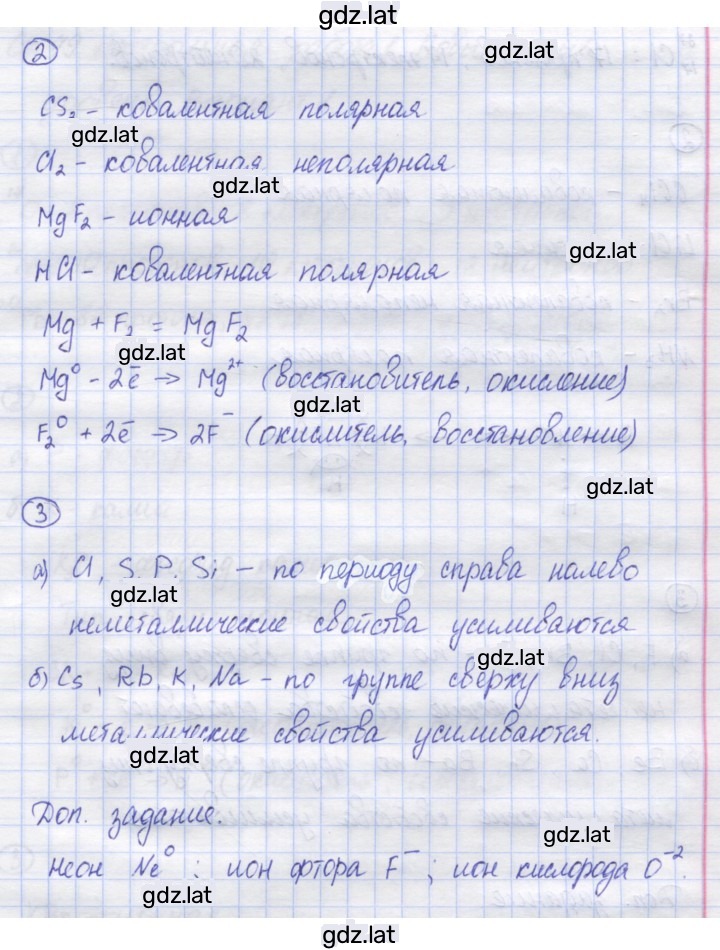 gdz.lat
2
gdz.lat
CS₂ - ковалентная полярная
gdz.lat
Cl₂ - ковалентная неполярная
gdz.lat
MgF₂ - ионная
gdz.lat
HCl - ковалентная полярная
Mg + F₂ = MgF₂
gdz.lat
Mg⁰ - 2ē → Mg²⁺ (восстановитель, окисление)
gdz.lat
F₂⁰ + 2ē → 2F⁻ (окислитель, восстановление)
gdz.lat
3
а) Cl, S. P. Si – по периоду справа налево
gdz.lat
неметаллические свойства усиливаются
gdz.lat
б) Cs, Rb, K, Na - по группе сверху вниз
металлические свойства усиливаются.
gdz.lat
Доп. задание.
gdz.lat
Неон Ne⁰ : ион фтора F⁻; ион кислорода O⁻².
gdz.lat
gdz.lat